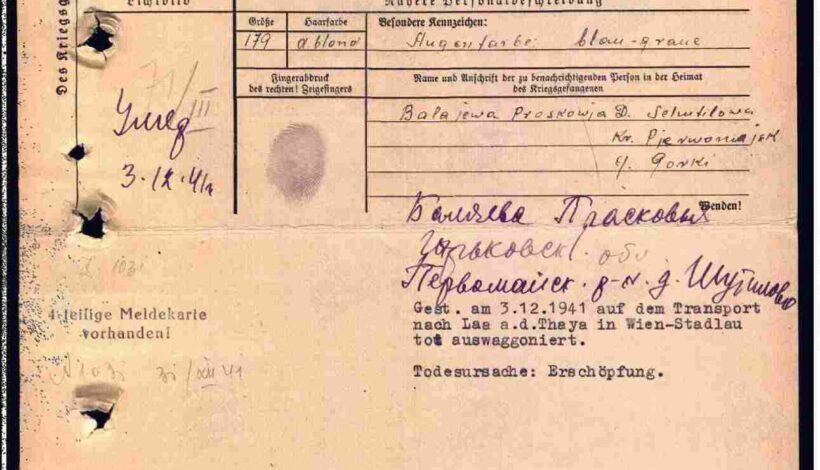 Des Kriegsg
Lichtbild
Nähere Personalbeschreibung
Größe
Haarfarbe
Besondere Kennzeichen:
179
d.blond
Augenfarbe: blau-graue
Fingerabdruck
des rechten! Zeigefingers
Name und Anschrift der zu benachrichtigenden Person in der Heimat
des Kriegsgefangenen
Balajewa Proskowja D. Schutilowa
Kr. Pjerwomajsk
g. Gorki
III
3.12.41
Wenden!
Баляева Прасковья
Горьковск. обл
Первомайск. р-н. д. Шутилово
Gest. am 3.12.1941 auf dem Transport
nach Laa a.d.Thaya in Wien-Stadlau
tot auswaggoniert.
Todesursache: Erschöpfung.
4-teilige Meldekarte
vorhanden!
31/XII 41